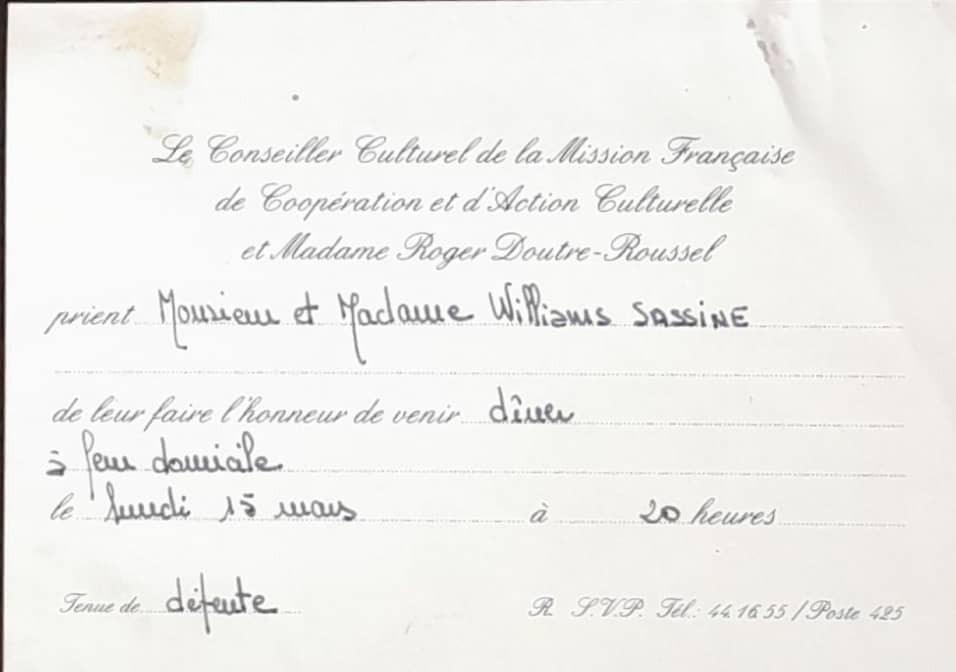 Le Conseiller Culturel de la Mission Française
de Coopération et d'Action Culturelle
et Madame Roger Doutre-Roussel
prient Monsieur et Madame Williams SASSINE
de leur faire l'honneur de venir dîner
à leur domicile
le lundi 15 mars à 20 heures
Tenue de détente
R. S.V.P. Tél.: 44.16.55 / Poste 425